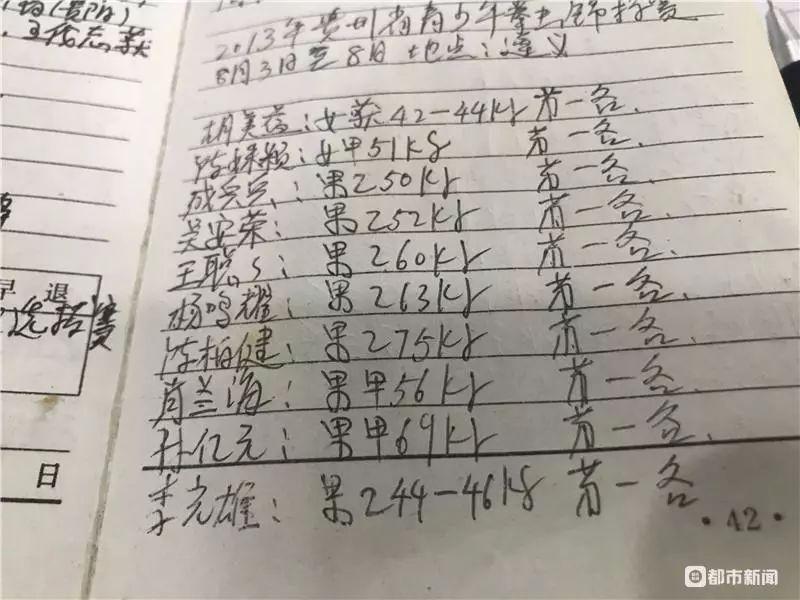 王俊志获
2013年贵州省青少年拳击锦标赛
8月3日至8日 地点:遵义
胡美蓉:女获42-44kg 第一名.
女甲51kg 第一名.
成兴兵:男250kg 第一名.
吴安荣:男252kg 第一名.
王聪:男260kg 第一名.
杨鸣耀:男263kg 第一名.
陈柏健:男275kg 第一名.
肖兰海:男甲56kg 第一名.
孙亿元:男甲69kg 第一名.
李克雄:男244-46kg 第一名
早 退
选拔赛
日
·12·
都市新闻